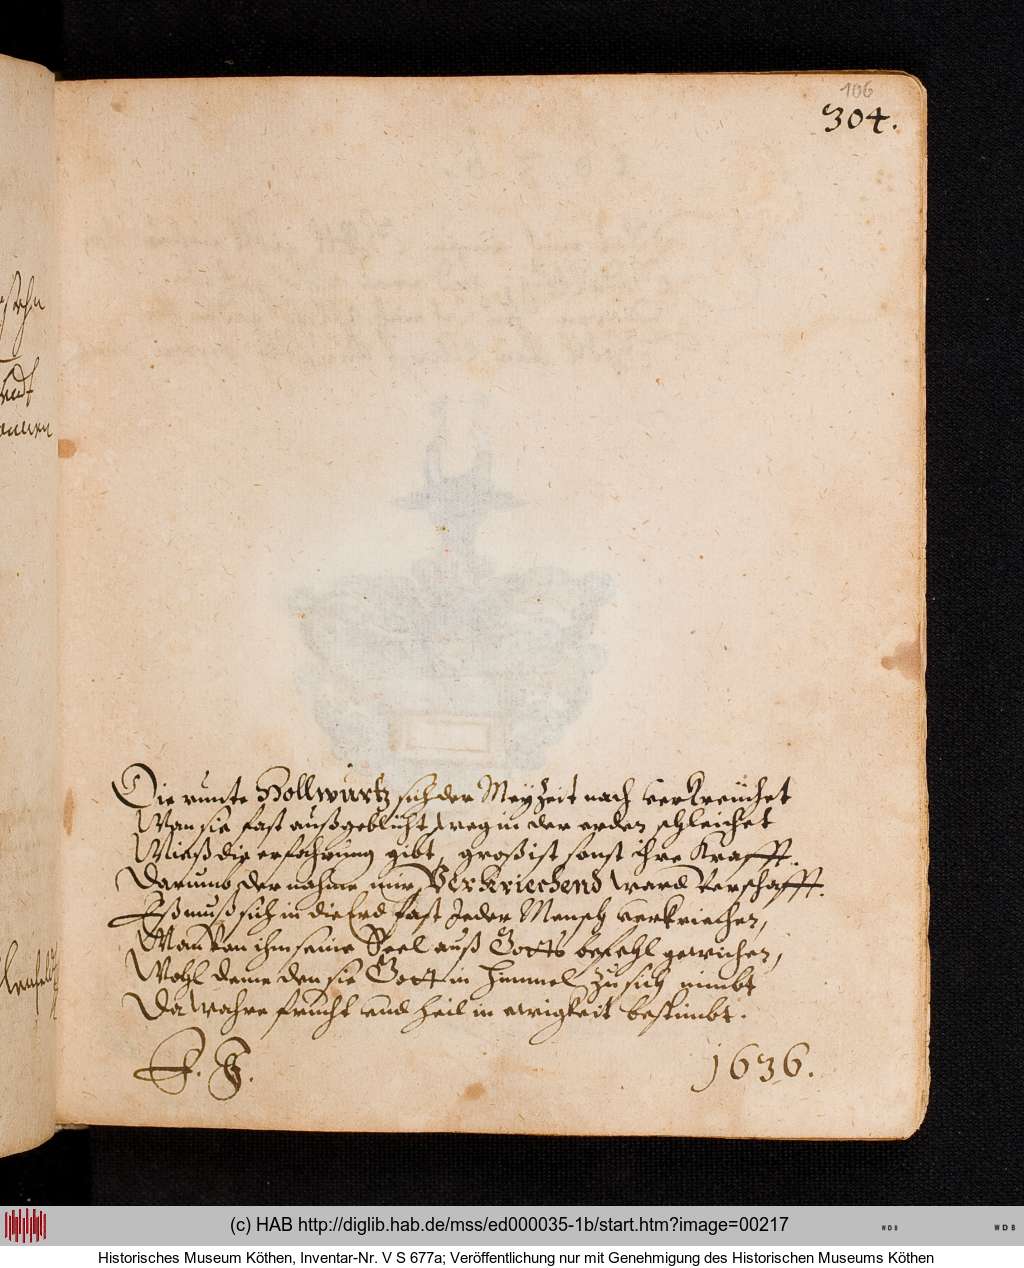 106
304.
Die runte Hollwurtz sich der Meyzeit nach verkreuchet
Wan sie fast außgebluht, weg in der erden schleichet
Wie uß die erfahrung gibt, groß ist sonst ihre Krafft.
Darumb der nahme mir, Verkriechend ward verschafft.
Eß muß sich in die Erd fast Jeder Mensch verkriechen,
Wan kan ihm seine Seel auß Gotts befehl gewichen,
Wohl deme den sie Gott in himmel zu sich nimbt
Da wahre frucht und heil in ewigkeit bestimbt.
1636.
(c) HAB http://diglib.hab.de/mss/ed000035-1b/start.htm?image=00217
WDB
WDB
Historisches Museum Köthen, Inventar-Nr. V S 677a; Veröffentlichung nur mit Genehmigung des Historischen Museums Köthen